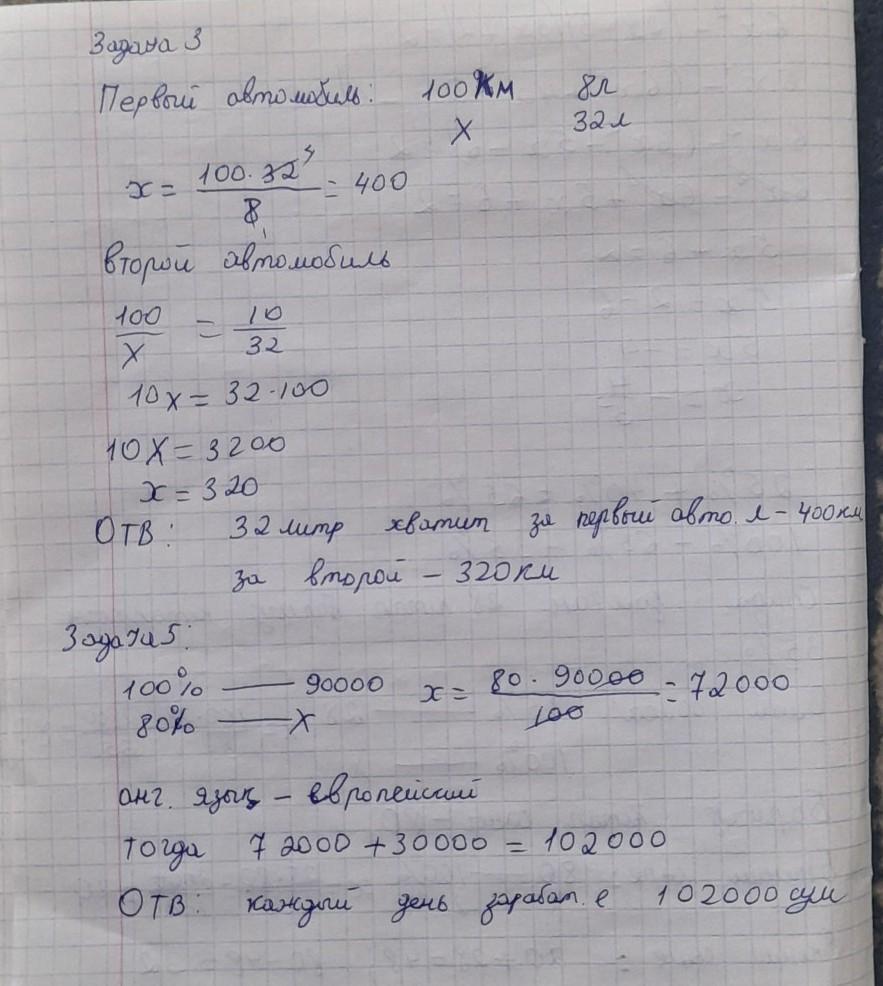 Задача 3
Первый автомобиль: 100км 8л
X 32л
x = 100 · 32 4 / 8 1 = 400
второй автомобиль
100 / X = 10 / 32
10x = 32 · 100
10X = 3200
x = 320
ОТВ: 32 литр хватит за первый авто. л – 400км
за второй – 320км
Задача 5:
100% — 90000 x = 80 · 90000 / 100 = 72000
80% — X
анг. язык – европейский
тогда 72000 + 30000 = 102000
ОТВ: каждый день зарабат. е 102000 сум